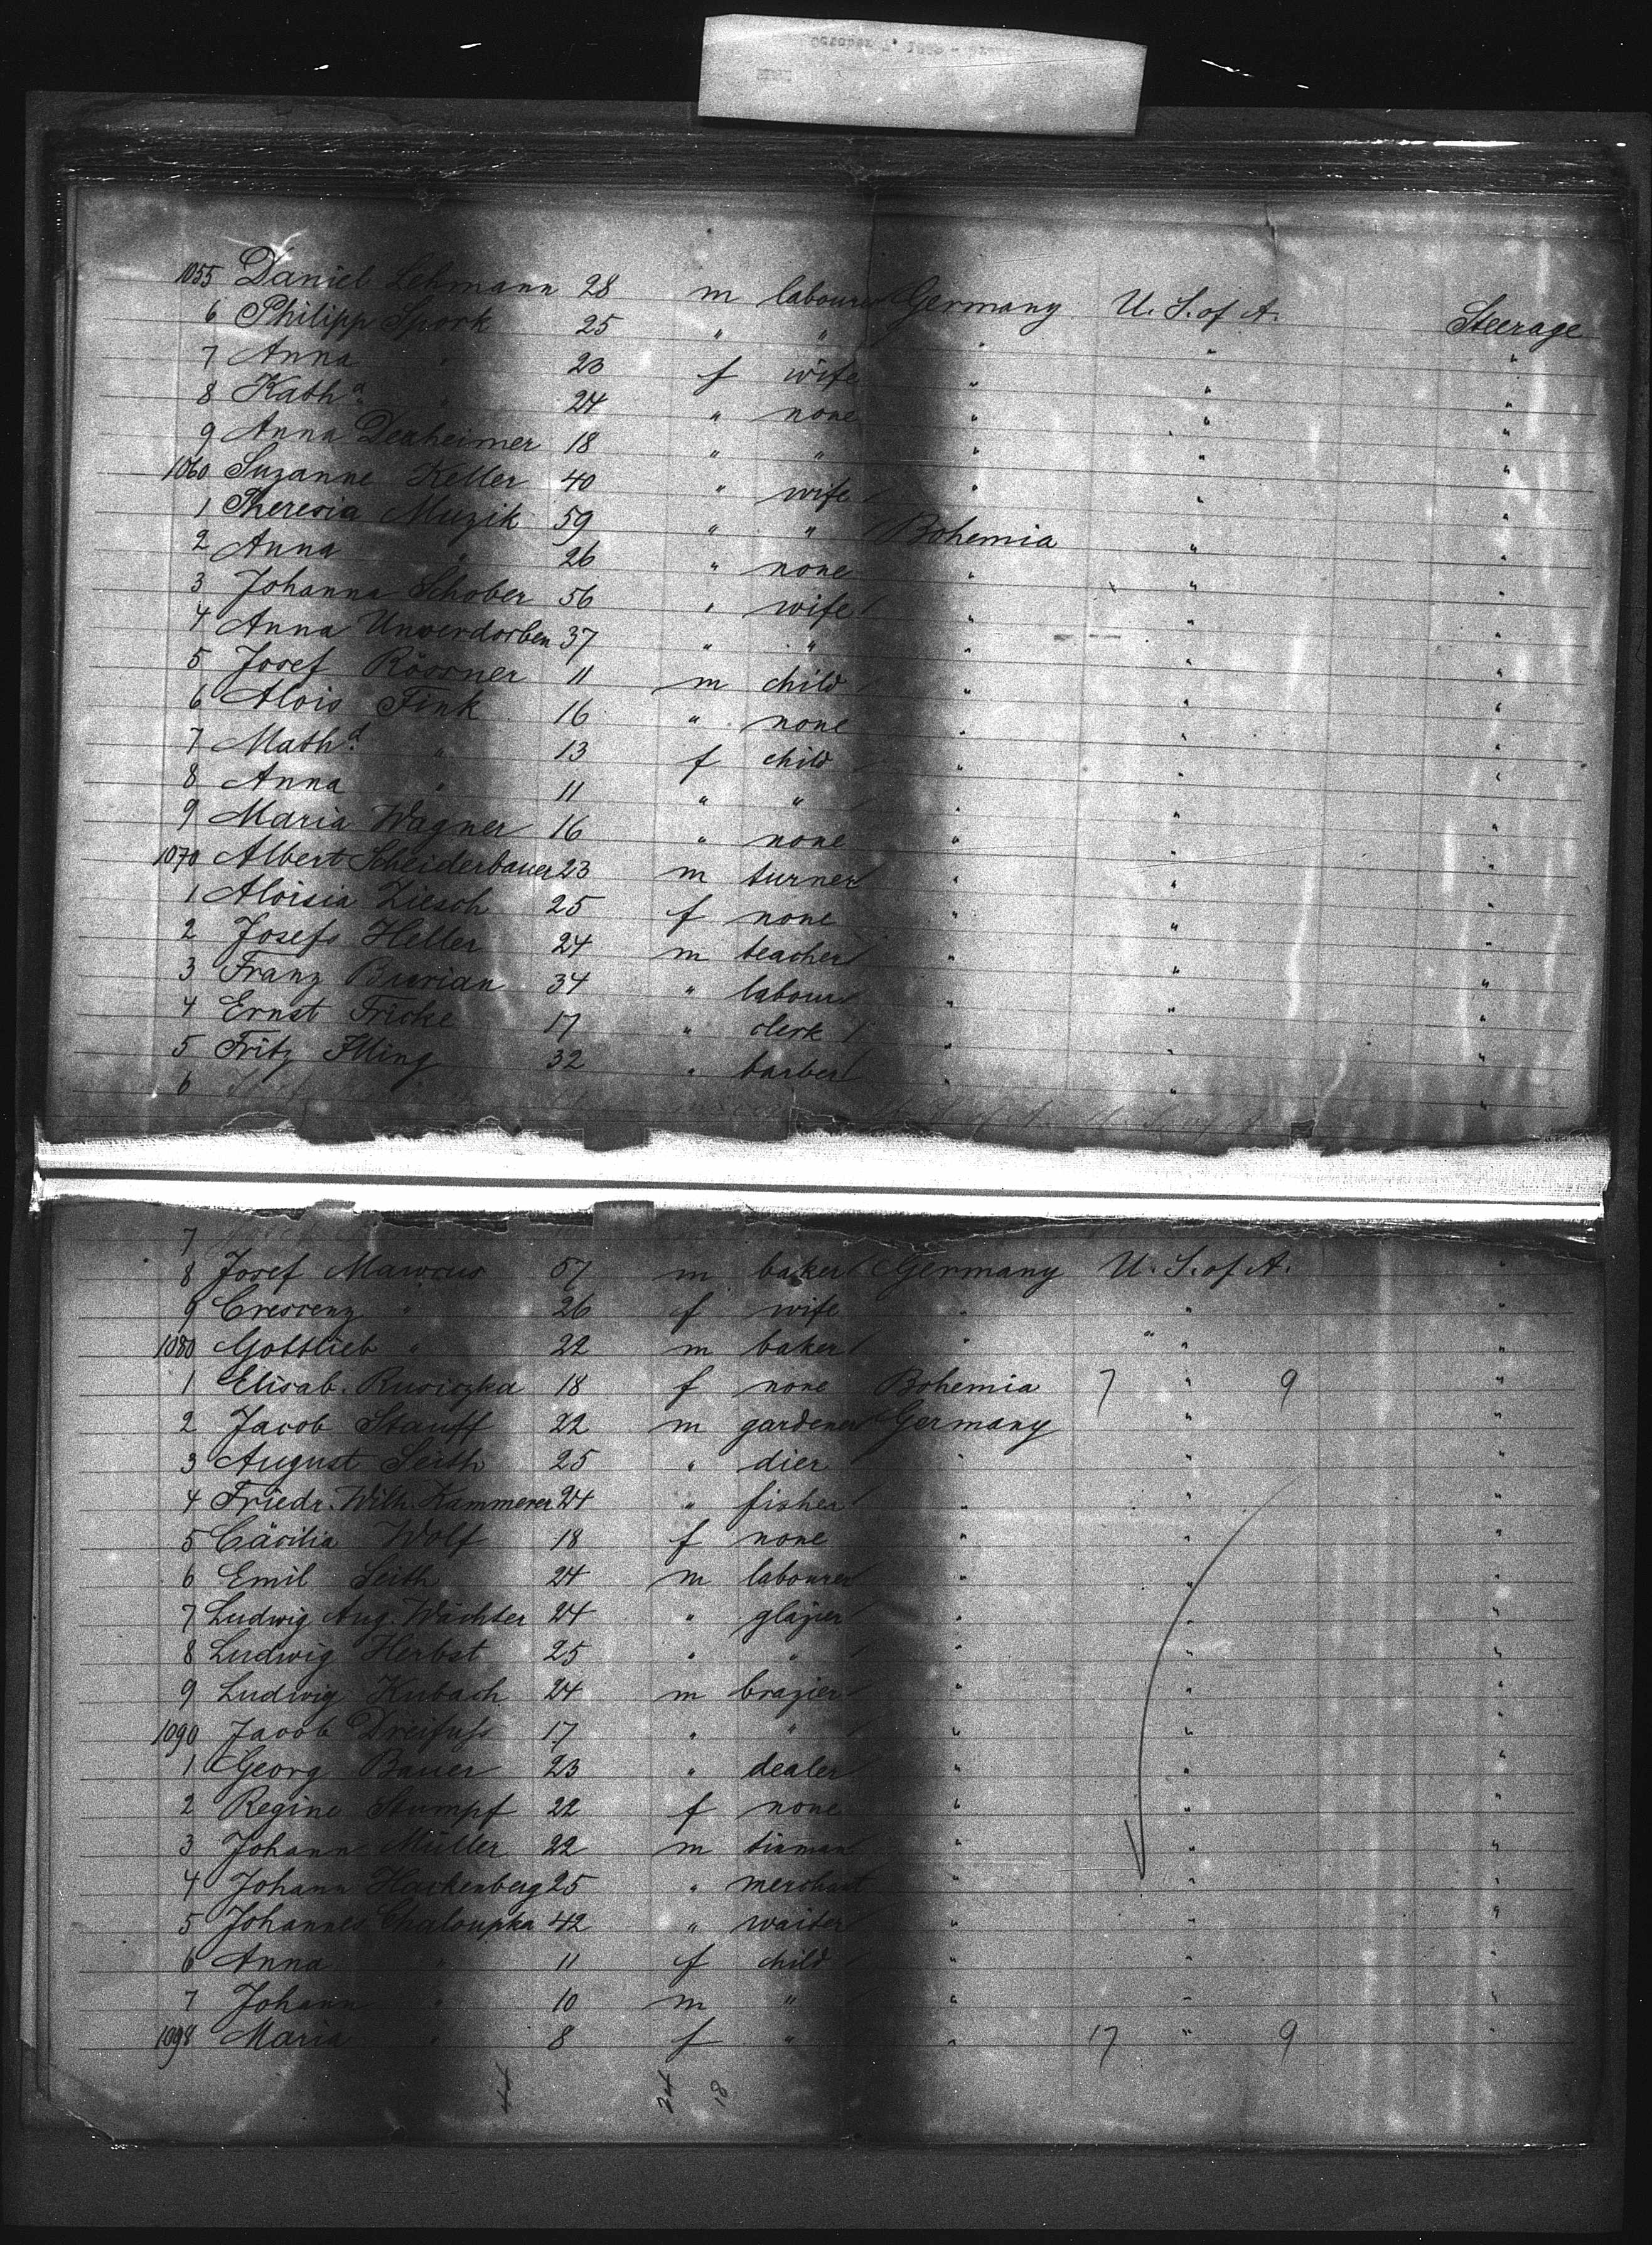 1055 Daniel Lehmann 28 m labourer Germany U. S. of A. Steerage
6 Philipp Spork 25 " " " " "
7 Anna " 23 f wife " " "
8 Kath.a " 24 " none " " "
9 Anna Dexheimer 18 " " " " "
1060 Suzanne Keller 40 " wife " " "
1 Theresia Muzik 59 " " Bohemia " "
2 Anna " 26 " none " " "
3 Johanna Schober 56 " wife " " "
4 Anna Unverdorben 37 " " " " "
5 Josef Rössner 11 m child " " "
6 Alois Fink 16 " none " " "
7 Math.d " 13 f child " " "
8 Anna " 11 " " " " "
9 Maria Wagner 16 " none " " "
1070 Albert Scheiderbauer 23 m turner " " "
1 Aloisia Ziesch 25 f none " " "
2 Josefs Heller 24 m teacher " " "
3 Franz Burian 34 " labour " " "
4 Ernst Fricke 17 " clerk " " "
5 Fritz Illing 32 " barber " " "
6
7
8 Josef Marcus 57 m baker Germany U. S. of A. "
9 Crescenz " 26 f wife " " "
1080 Gottlieb " 22 m baker " " "
1 Elisab. Rusiczka 18 f none Bohemia 7 " 9 "
2 Jacob Stauff 22 m gardener Germany " "
3 August Seith 25 " dier " " "
4 Friedr. Wilh. Kammerer 24 " fisher " " "
5 Cäcilia Wolf 18 f none " " "
6 Emil Seith 24 m labourer " " "
7 Ludwig Aug. Wächter 24 " glazier " " "
8 Ludwig Herbst 25 " " " " "
9 Ludwig Kubach 24 m brazier " " "
1090 Jacob Dreifuss 17 " " " " "
1 Georg Bauer 23 " dealer " " "
2 Regine Stumpf 22 f none " " "
3 Johann Müller 22 m tinman " " "
4 Johann Hackenberg 25 " merchant " " "
5 Johannes Chaloupka 42 " waiter " " "
6 Anna " 11 f child " " "
7 Johann " 10 m " " " "
1098 Maria " 8 f " " 17 " 9 "
44 24 18